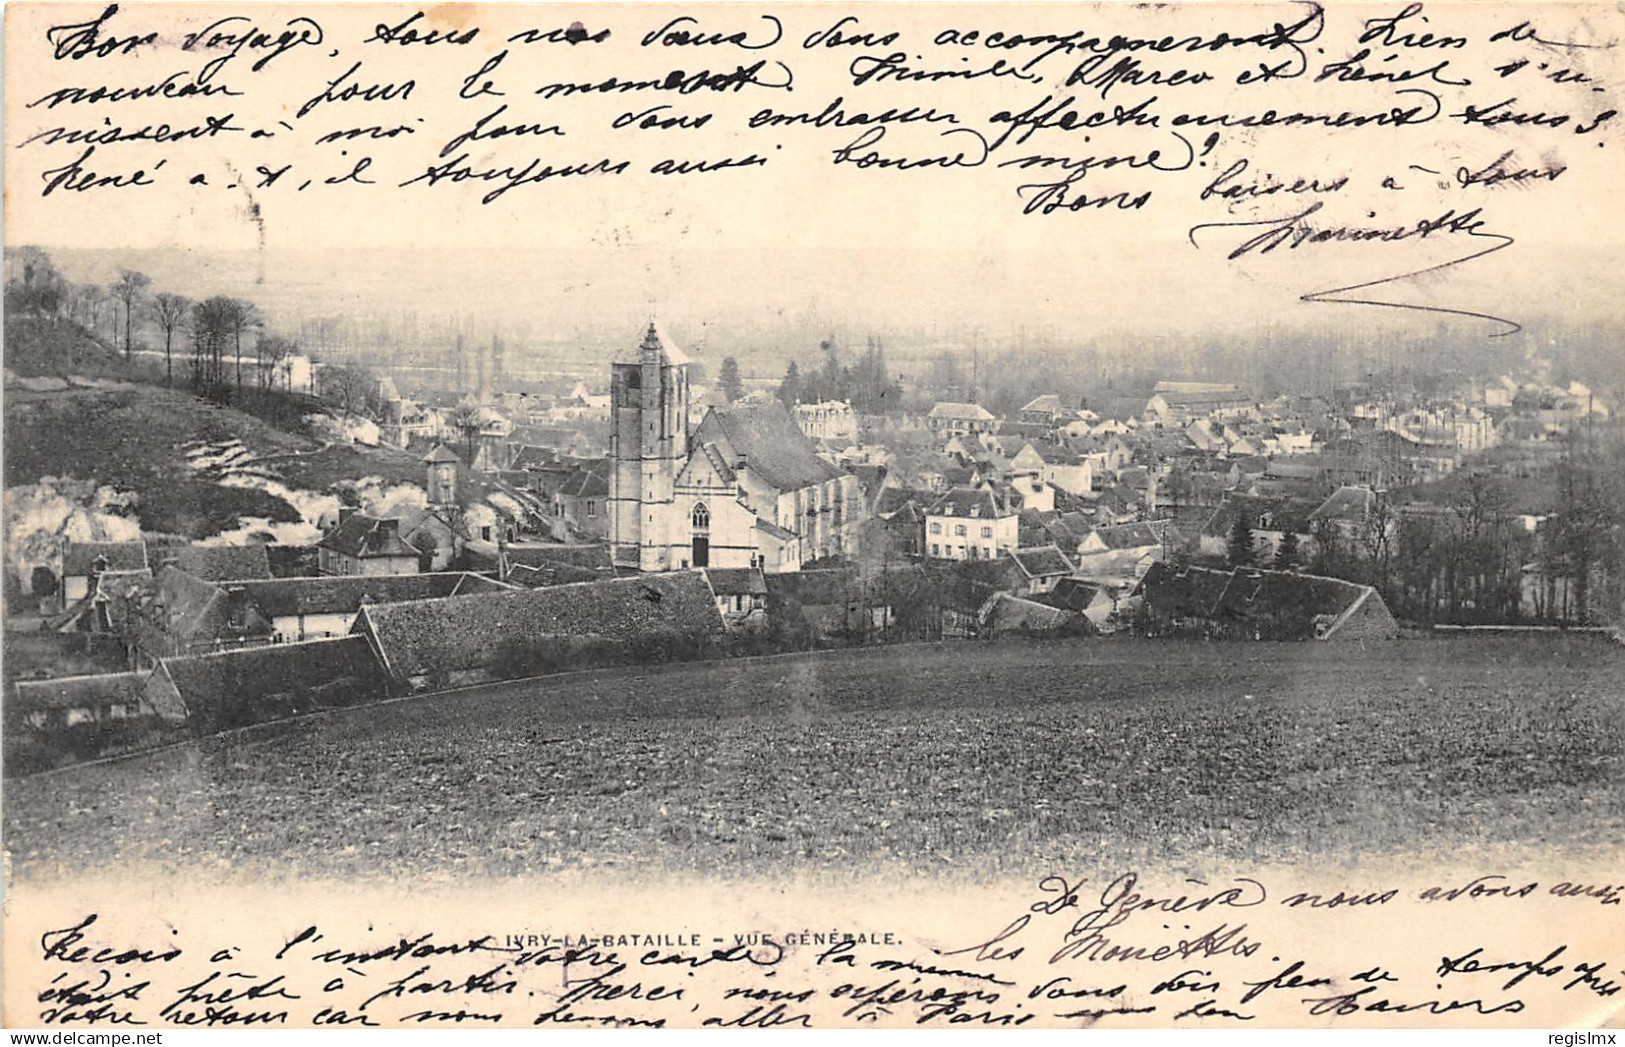 Bon voyage, tous nos vœux vous accompagneront. Rien de
nouveau pour le moment. Mimile, Marco et Réné s'u-
nissent à moi pour vous embrasser affectueusement tous 3.
René a-t-il toujours aussi bonne mine?
Bons baisers à tous
Marinette
De Genève nous avons aussi
les Mouettes.
IVRY-LA-BATAILLE - VUE GÉNÉRALE.
Reçois à l'instant votre carte la mienne
était prête à partir. Merci, nous espérons vous voir peu de temps après
votre retour car nous devons aller à Paris sous peu Baisers
regislmx